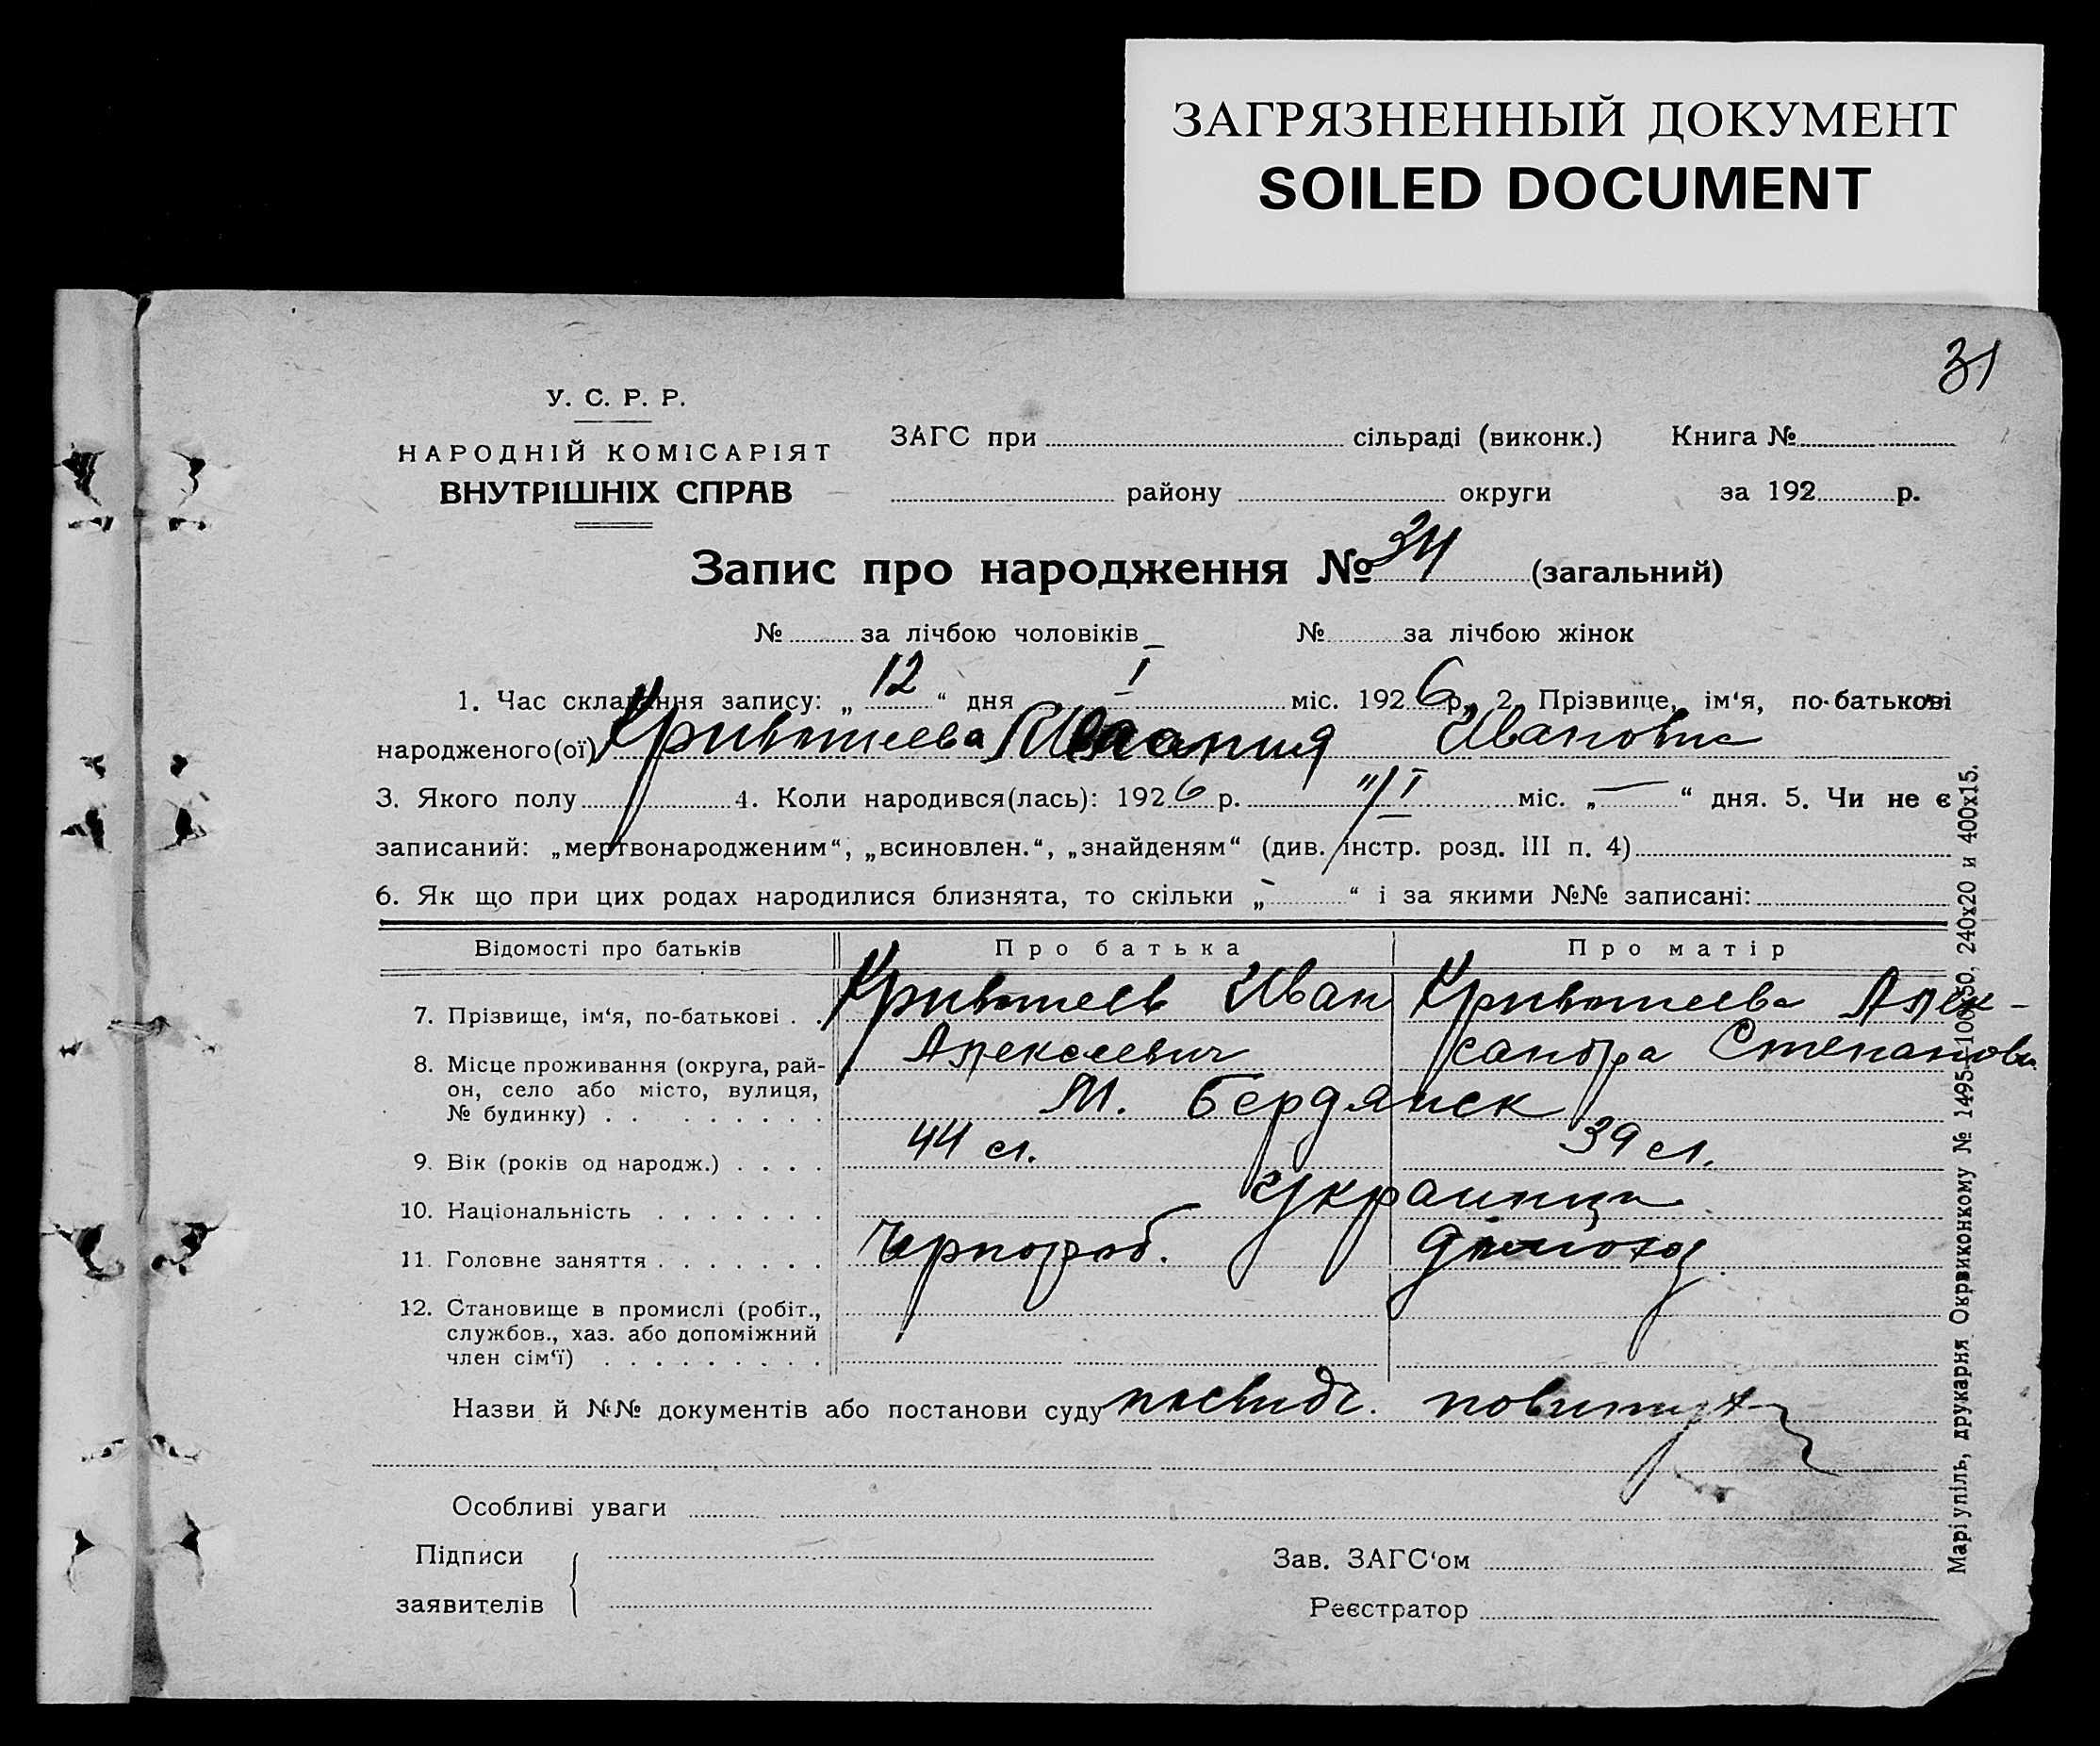 ЗАГРЯЗНЕННЫЙ ДОКУМЕНТ
SOILED DOCUMENT
31
У. С. Р. Р.
НАРОДНІЙ КОМІСАРІЯТ
ВНУТРІШНІХ СПРАВ
ЗАГС при сільраді (виконк.) Книга №
району округи за 192 р.
Запис про народження № 34 (загальний)
№ за лічбою чоловіків № за лічбою жінок
1. Час складання запису: „ 12 “ дня I міс. 1926 р., 2. Прізвище, ім‘я, по-батькові
народженого(ої) Ивановна
3. Якого полу 4. Коли народився(лась): 1926 р. "/I міс. „ — “ дня. 5. Чи не є
записаний: „мертвонародженим“, „всиновлен.“, „знайденям“ (див. інстр. розд. III п. 4)
6. Як що при цих родах народилися близнята, то скільки „ - “ і за якими №№ записані:
Відомості про батьків Про батька Про матір
7. Прізвище, ім‘я, по-батькові . . Иван Алек-
Алексеевич сандра Степановна
8. Місце проживання (округа, рай-
он, село або місто, вулиця,
№ будинку) . . . . . . . . М. Бердянск
9. Вік (років од народж.) . . . . 44 л. 39 л.
10. Національність . . . . . . . Украинцы
11. Головне заняття . . . . . . . Чорнороб.
12. Становище в промислі (робіт.,
службов., хаз. або допоміжний
член сім‘ї) . . . . . . . . .
Назви й №№ документів або постанови суду посвидч.
Особливі уваги
Підписи
заявителів
Зав. ЗАГС‘ом
Реєстратор
Маріупіль, друкарня Окрвиконкому № 1495—100050. 240х20 и 400х15.